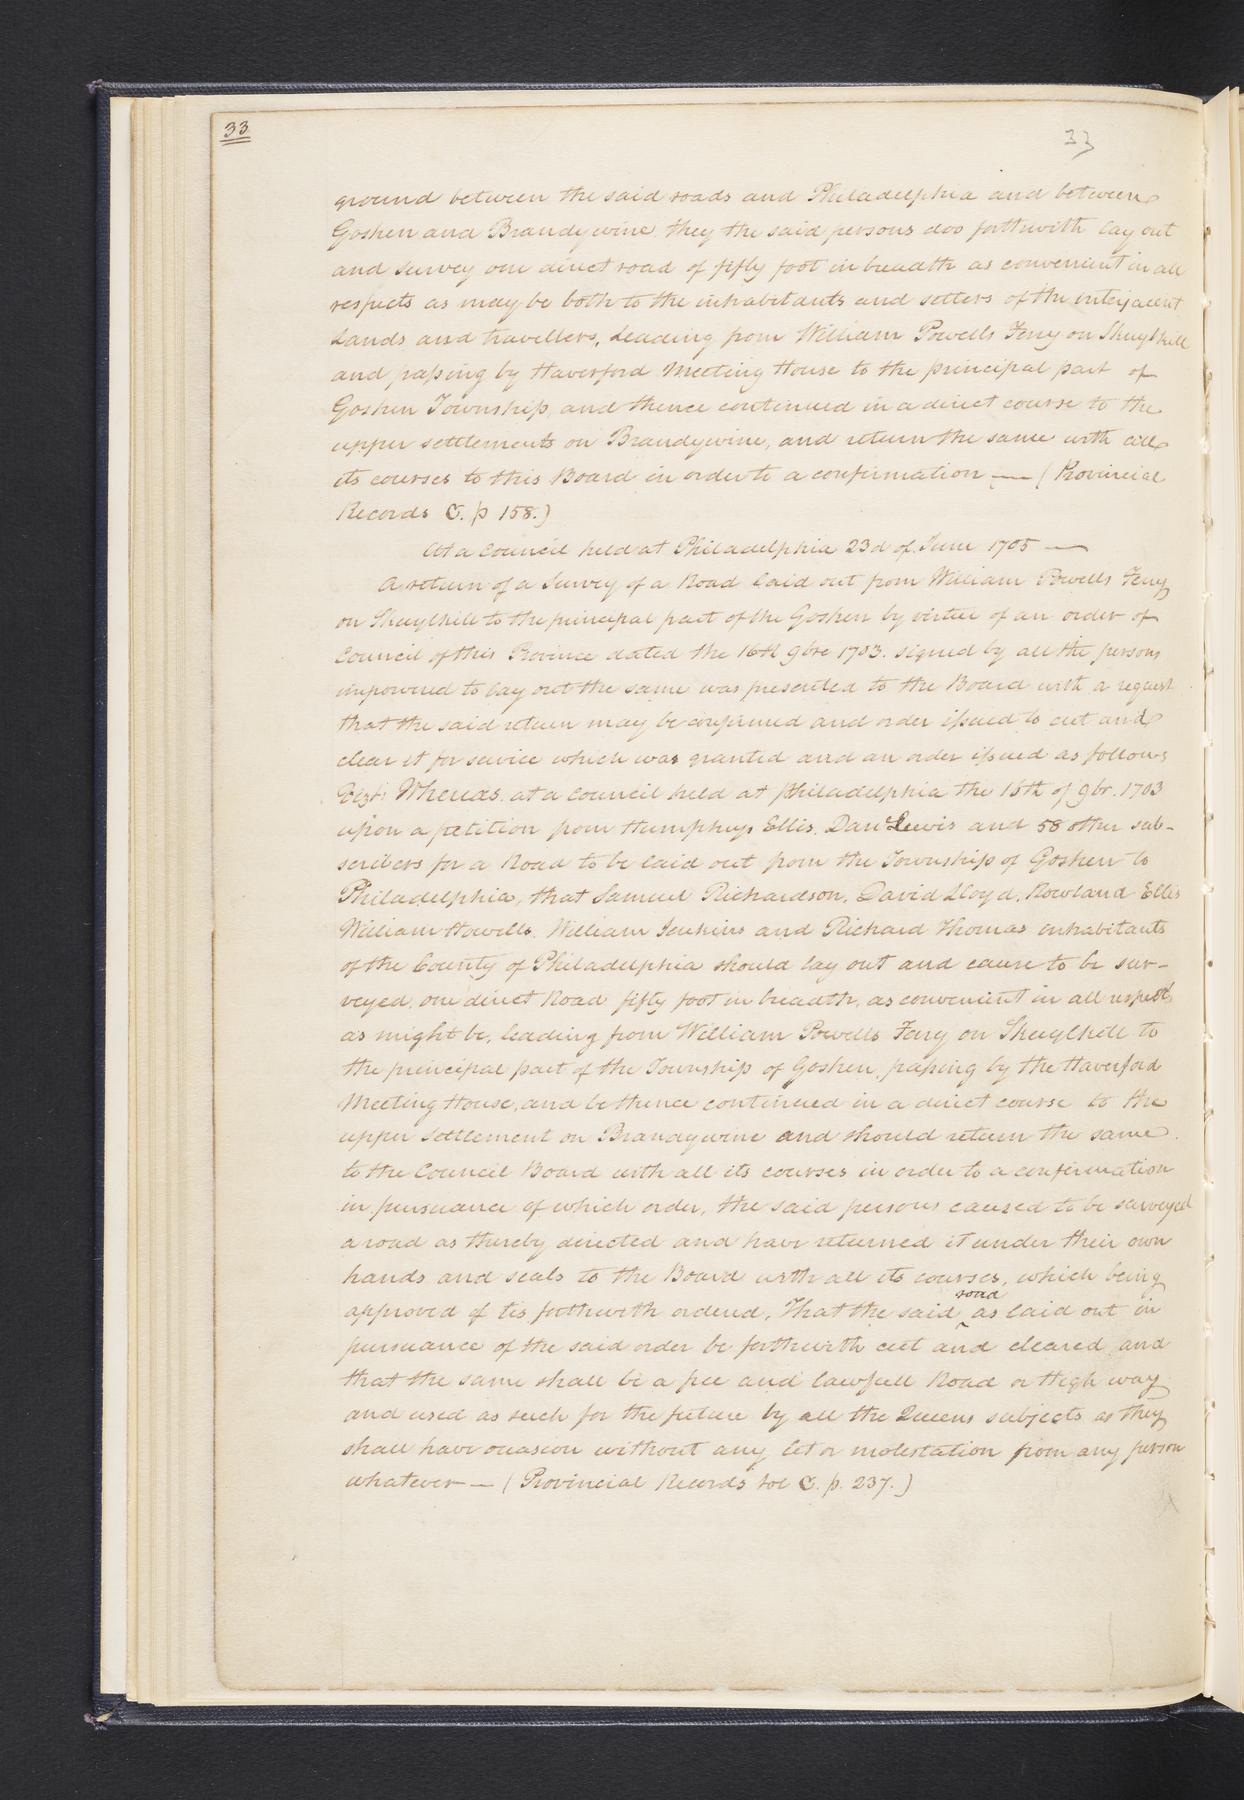 33
33
ground between the said roads and Philadelphia and between
Goshen and Brandywine they the said persons doo forthwith lay out
and survey one direct road of fifty foot in breadth as convenient in all
respects as may be both to the inhabitants and setters of the interjacent
Lands and travellers, Leading from William Powells Ferry on Skuylkill
and passing by Haverford Meeting House to the principal part of
Goshen Township, and thence continued in a direct course to the
upper settlements on Brandywine, and return the same with all
its courses to this Board in order to a confirmation — (Provincial
Records C. p 158.)
At a Council held at Philadelphia 23d of June 1705 —
A return of a Survey of a Road laid out from William Powells Ferry
on Skuylkill to the principal part of the Goshen by virtue of an order of
Council of this Province dated the 16th 9bre 1703. signed by all the persons
impowered to lay out the same was presented to the Board with a request
that the said return may be confirmed and order issued to cut and
clear it for service which was granted and an order issued as follows
Vizt: Whereas at a Council held at Philadelphia the 16th of 9br. 1703
upon a petition from Humphrys Ellis, Danl Lewis and 58 other sub-
scribers for a Road to be laid out from the Township of Goshen to
Philadelphia, that Samuel Richardson, David Lloyd, Rowland Ellis
William Howells, William Jenkins and Richard Thomas inhabitants
of the County of Philadelphia should lay out and cause to be sur-
veyed, one direct Road fifty foot in breadth, as convenient in all respects
as might be, leading from William Powells Ferry on Skuylkill to
the principal part of the Township of Goshen, passing by the Haverford
Meeting House, and be thence continued in a direct course to the
upper settlement on Brandywine and should return the same
to the Council Board with all its courses in order to a confirmation
in pursuance of which order, the said persons caused to be surveyed
a road as thereby directed and have returned it under their own
hands and seals to the Board with all its courses, which being
approved of tis forthwith ordered, That the said road as laid out in
pursuance of the said order be forthwith cut and cleared and
that the same shall be a free and lawfull Road or High way
and used as such for the future by all the Queens subjects as they
shall have occasion without any let or molestation from any person
whatever — (Provincial Records Vol C. p. 237.)